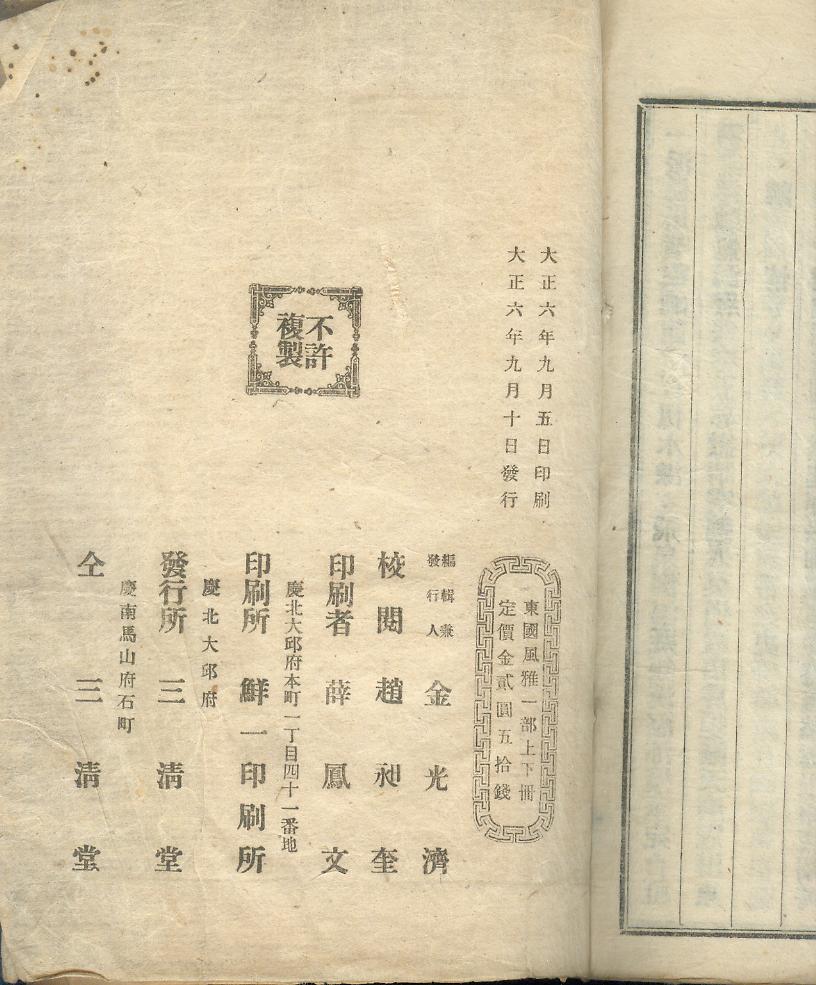 大正六年九月五日印刷
大正六年九月十日發行
不許
複製
東國風雅一部上下冊
定價金貳圓五拾錢
編輯兼
發行人
金光濟
校閱 趙昶奎
印刷者 薛鳳文
慶北大邱府本町一丁目四十一番地
印刷所 鮮一印刷所
慶北大邱府
發行所 三淸堂
慶南馬山府石町
仝 三淸堂